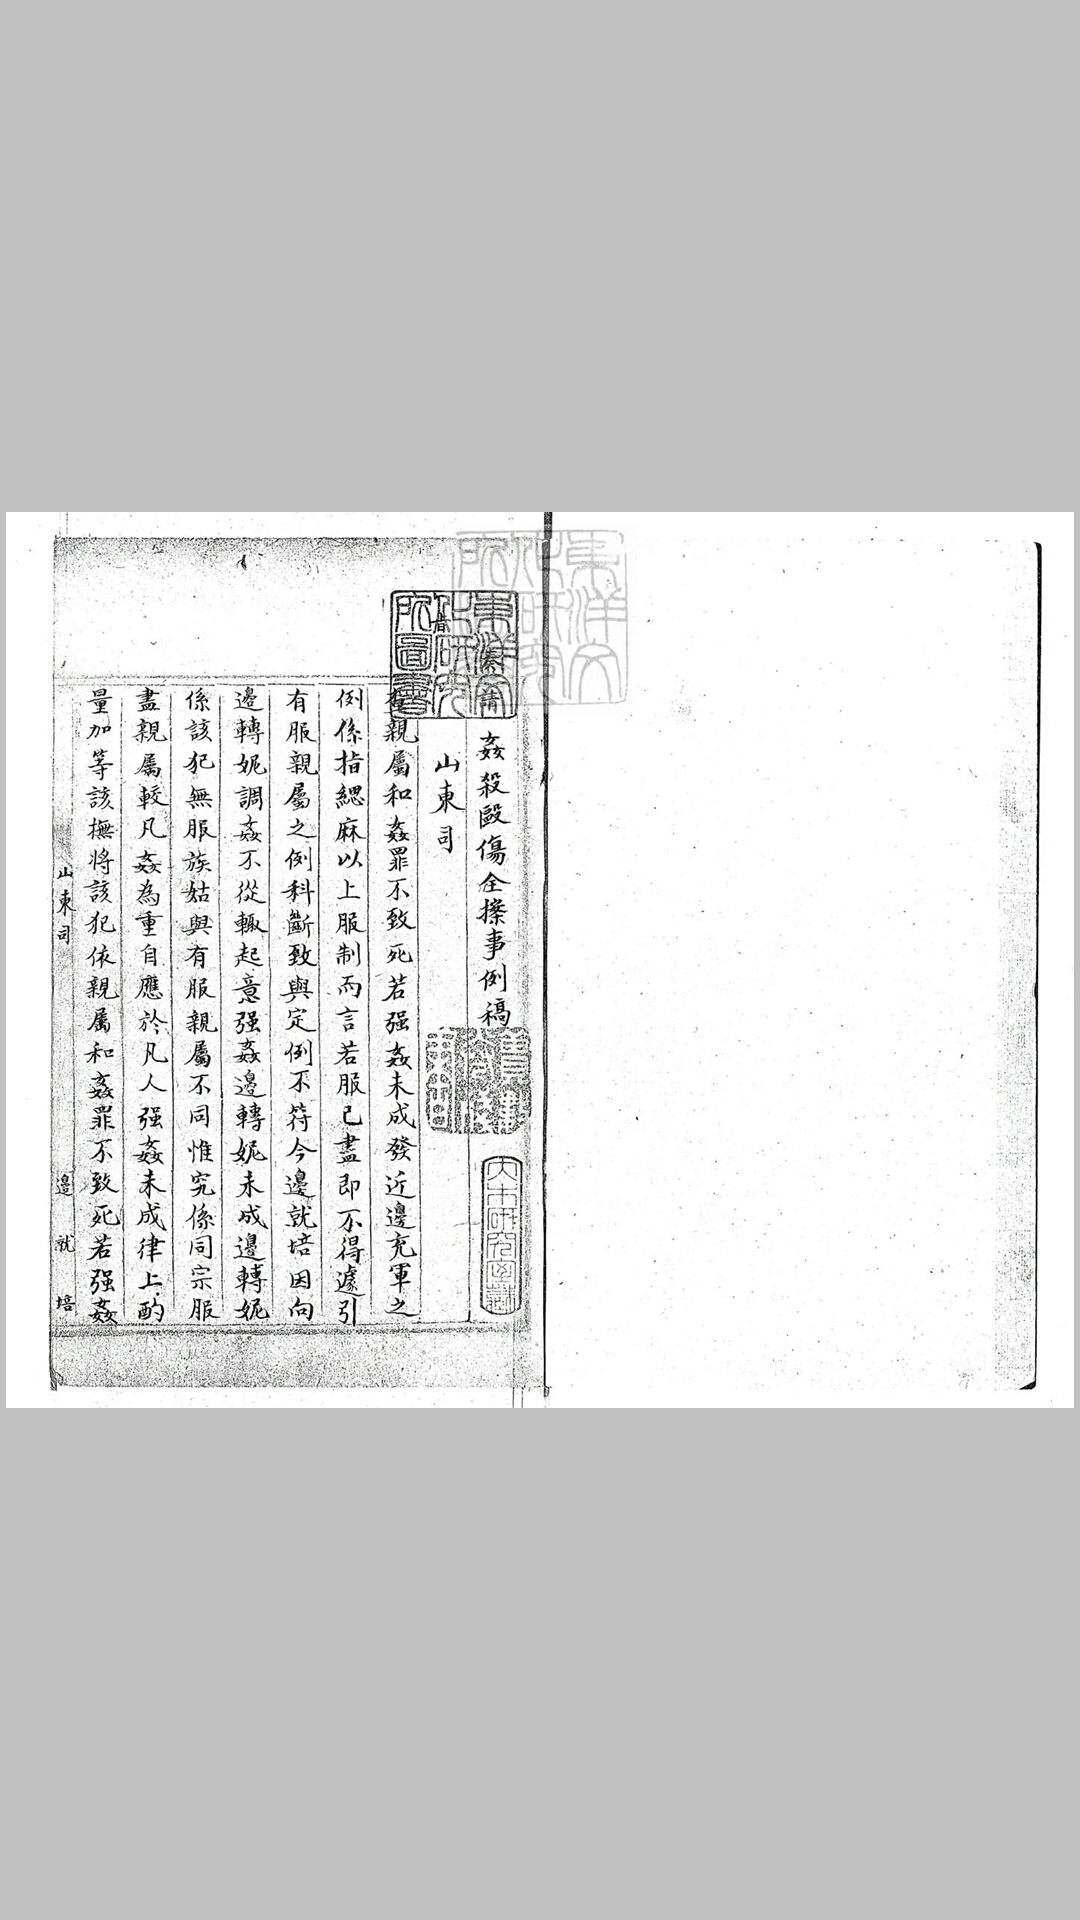 姦殺毆傷全搽事例稿
山東司
親屬和姦罪不致死若强姦未成發近邊充軍之
例係指緦麻以上服制而言若服已盡即不得遽引
有服親屬之例科斷致與定例不符今邊就培因向
邊轉妮調姦不從輙起意强姦邊轉妮未成邊轉妮
係該犯無服族姑與有服親屬不同惟究係同宗服
盡親屬較凡姦為重自應於凡人强姦未成律上酌
量加等該撫將該犯依親屬和姦罪不致死若强姦
山東司 邊就培
東洋文化研究所圖書
大木研究室藏